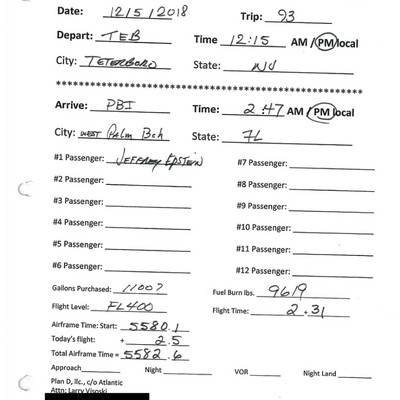 Date: 12/5/2018 Trip: 93
Depart: TEB Time 12:15 AM / PM local
City: TETERBORO State: NJ
**************************************************
Arrive: PBI Time: 2:47 AM / PM local
City: WEST Palm Bch State: FL
#1 Passenger: JEFFREY EPSTEIN #7 Passenger:
#2 Passenger: #8 Passenger:
#3 Passenger: #9 Passenger:
#4 Passenger: #10 Passenger:
#5 Passenger: #11 Passenger:
#6 Passenger: #12 Passenger:
Gallons Purchased: Fuel Burn lbs. 9619
Flight Level: FL400 Flight Time: 2.31
Airframe Time: Start: 5580.1
Today's flight: + 2.5
Total Airframe Time = 5582.6
Approach Night VOR Night Land
Plan D, llc., c/o Atlantic
Attn: Larry Visoski